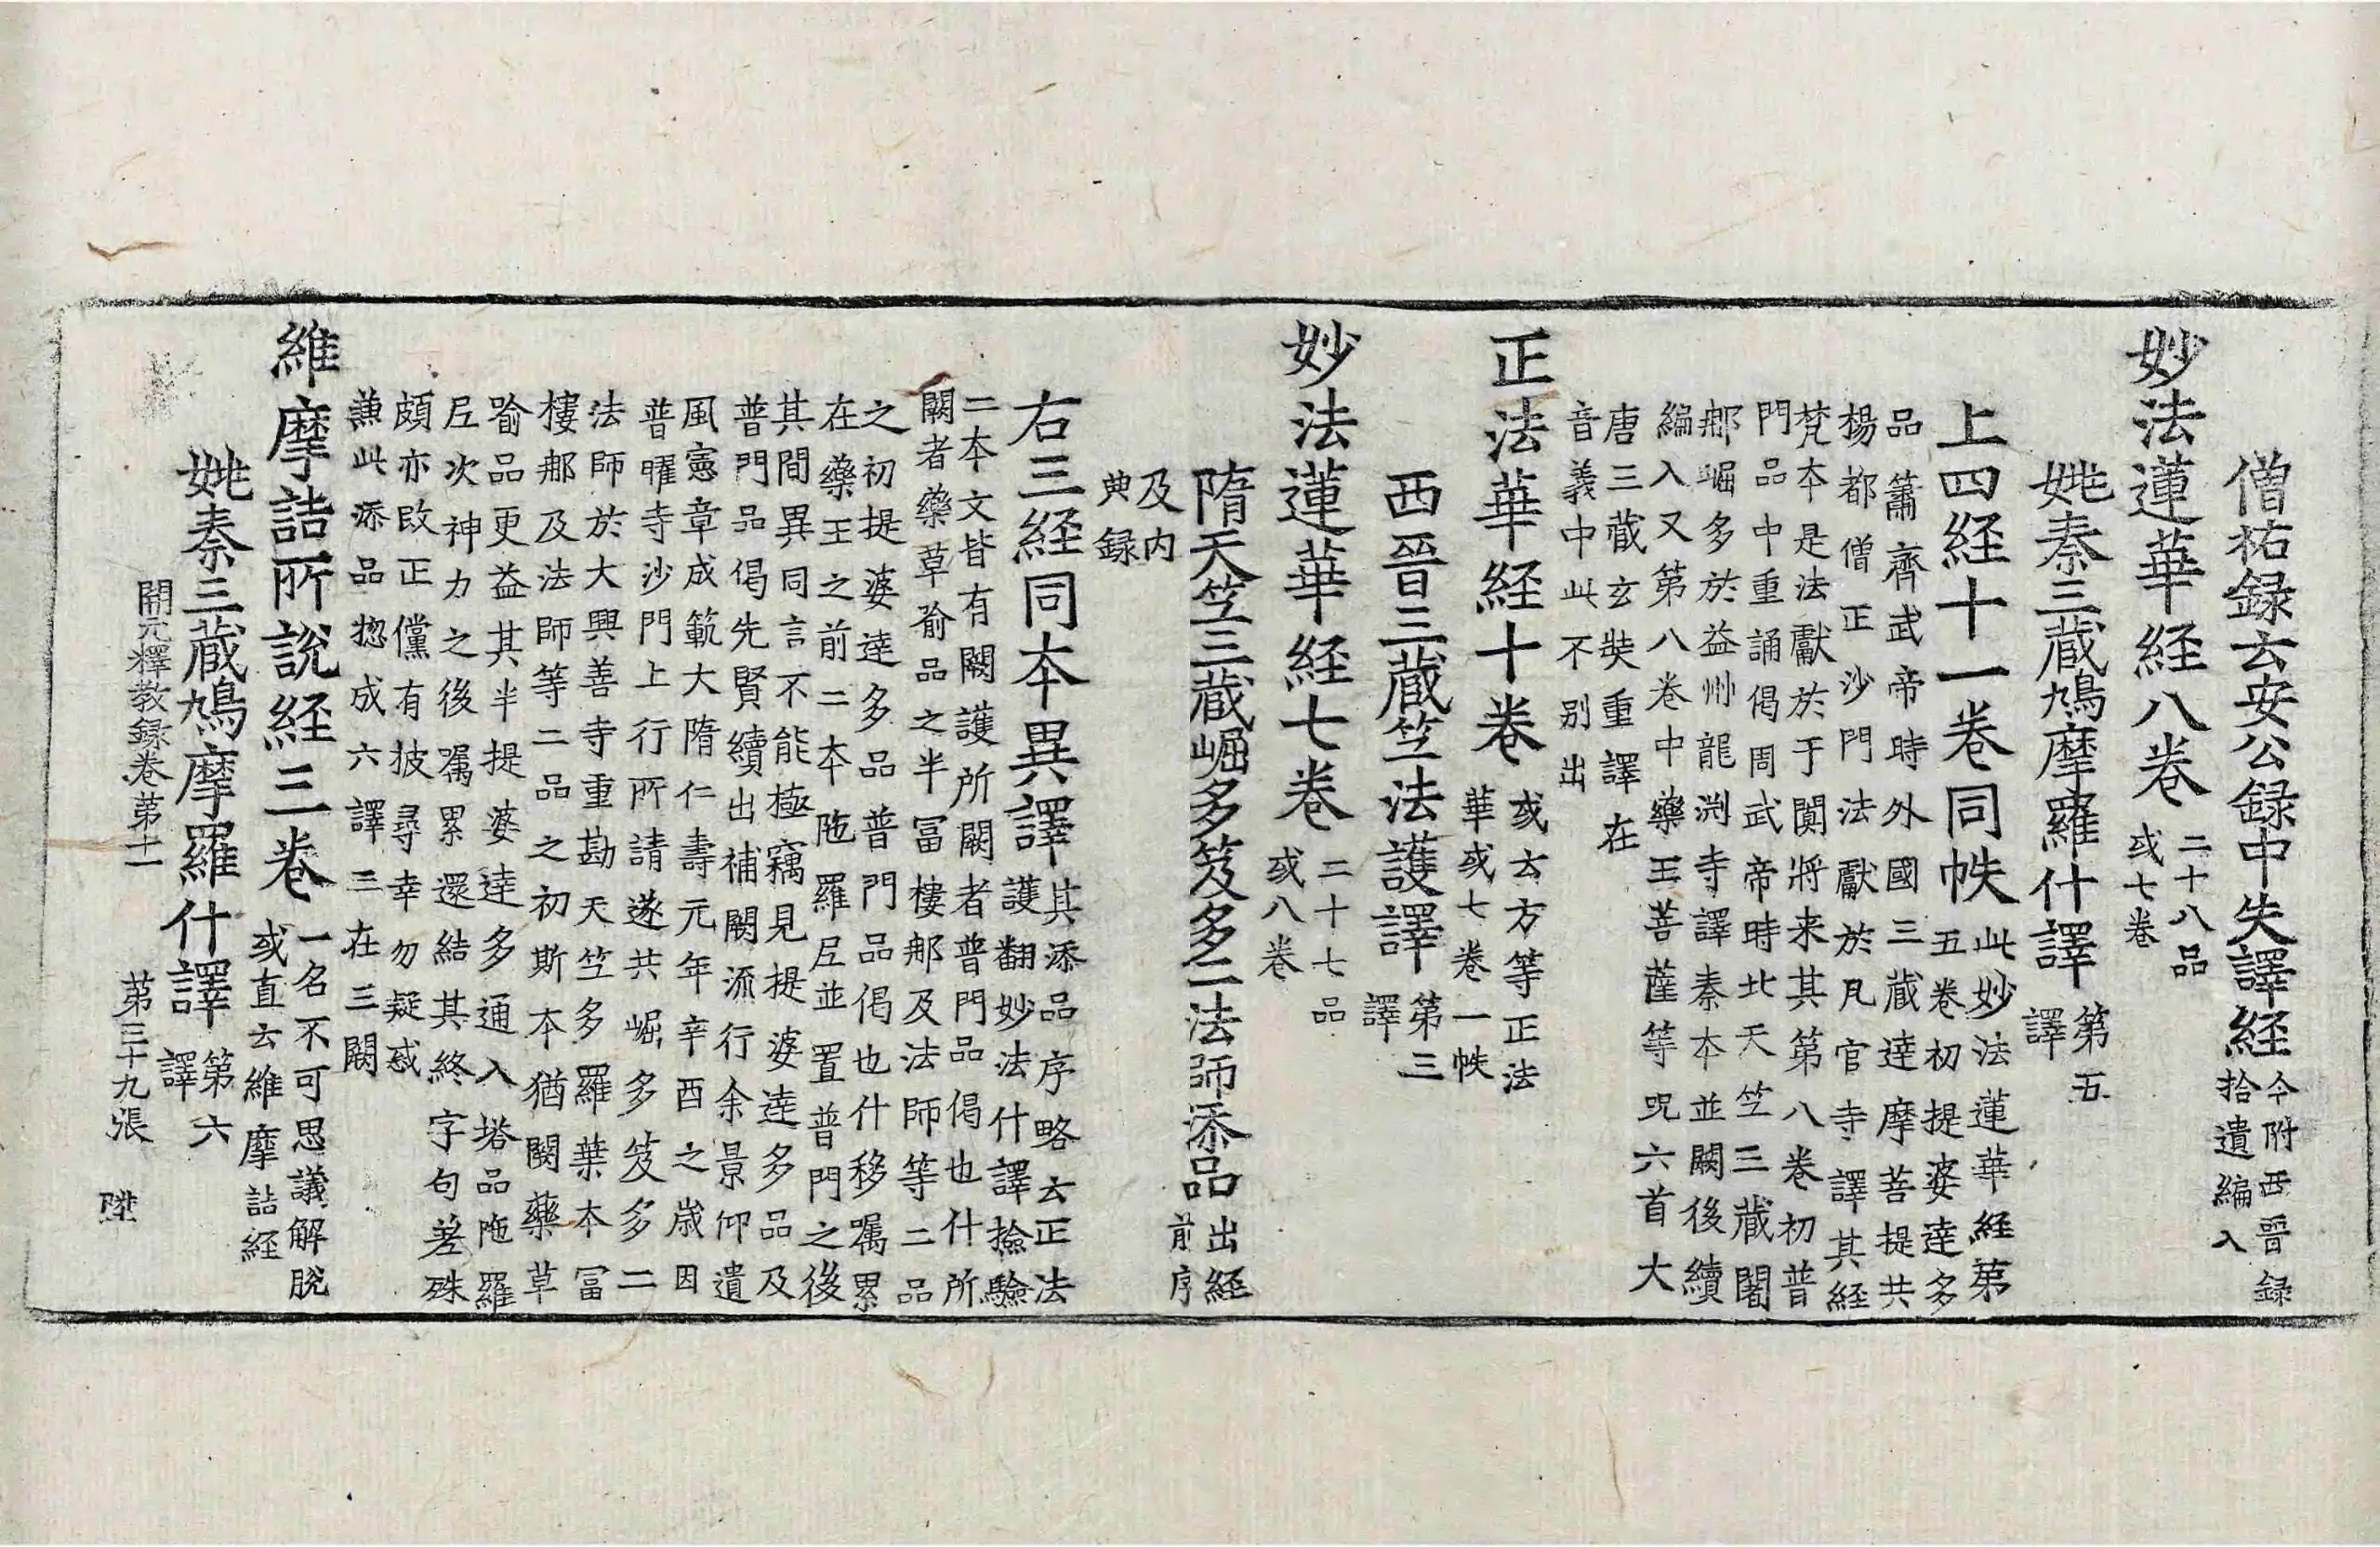 僧祐録云安公録中失譯経今附西晉録
拾遺編入
妙法蓮華経八卷二十八品
或七卷
姚秦三藏鳩摩羅什譯第五
譯
上四経十一卷同帙此妙法蓮華経第
五卷初提婆達多
品簫齊武帝時外國三藏達摩菩提共
楊都僧正沙門法獻於凡官寺譯其経
梵本是法獻於于闐將来其第八卷初普
門品中重誦偈周武帝時北天竺三藏闍
郍崛多於益州龍渕寺譯秦本並闕後續
編入又第八卷中藥王菩薩等呪六首大
唐三藏玄奘重譯在
音義中此不别出
正法華経十卷或云方等正法
華或七卷一帙
西晉三藏竺法護譯第三
譯
妙法蓮華経七卷二十七品
或八卷
隋天竺三藏崛多笈多二法師添品出経
前序
及内
典録
右三経同本異譯其添品序略云正法
護翻妙法什譯撿驗
二本文皆有闕護所闕者普門品偈也什所
闕者藥草喻品之半冨樓郍及法師等二品
之初提婆達多品普門品偈也什移囑累
在藥王之前二本陁羅尼並置普門之後
其間異同言不能極竊見提婆達多品及
普門品偈先賢續出補闕流行余景仰遺
風憲章成範大隋仁壽元年辛酉之歳因
普曜寺沙門上行所請遂共崛多笈多二
法師於大興善寺重勘天竺多羅葉本冨
樓郍及法師等二品之初斯本猶闕藥草
喻品更益其半提婆達多通入塔品陁羅
尼次神力之後囑累還結其終字句差殊
頗亦改正儻有披尋幸勿疑惑
兼此添品惣成六譯三在三闕
維摩詰所說経三卷一名不可思議解脫
或直云維摩詰経
姚秦三藏鳩摩羅什譯第六
譯
開元釋教録卷第十一　第三十九張　陞